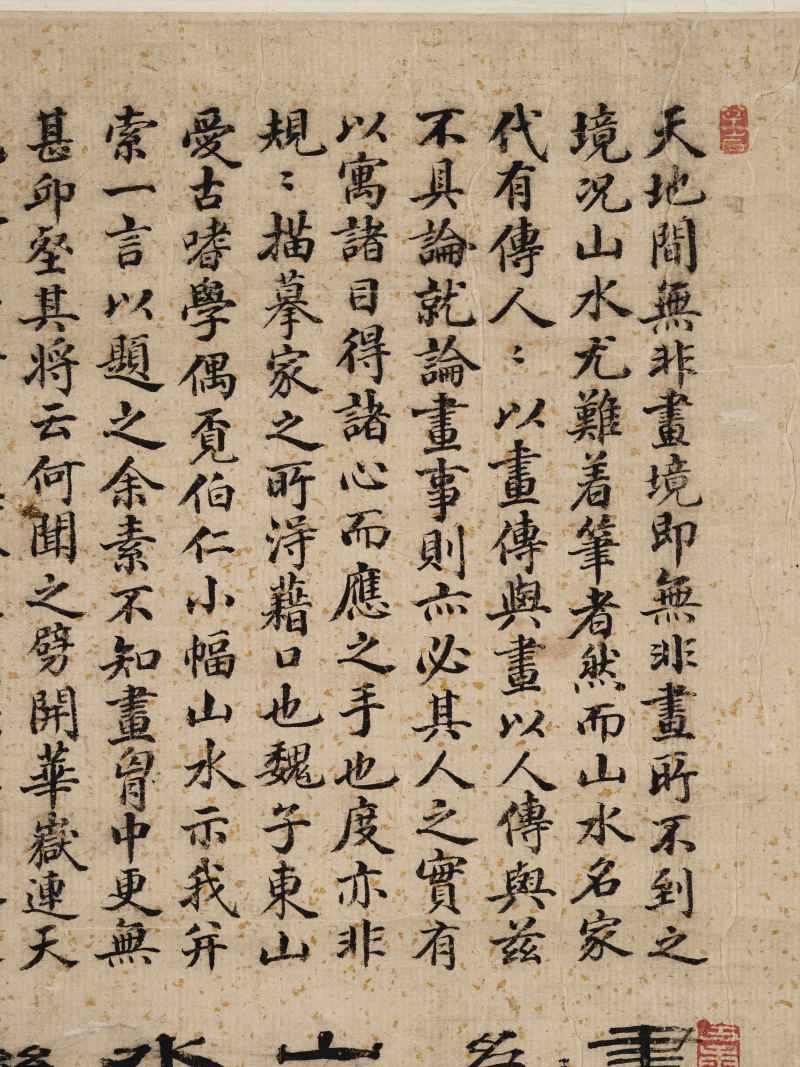 天地間無非畫境即無非畫所不到之
境況山水尤難着筆者然而山水名家
代有傳人〻以畫傳與畫以人傳與茲
不具論就論畫事則亦必其人之實有
以寓諸目得諸心而應之手也度亦非
規〻描摹家之所淂藉口也魏子東山
愛古嗜學偶覔伯仁小幅山水示我并
索一言以題之余素不知畫胷中更無
甚卯壑其將云何聞之劈開華嶽連天